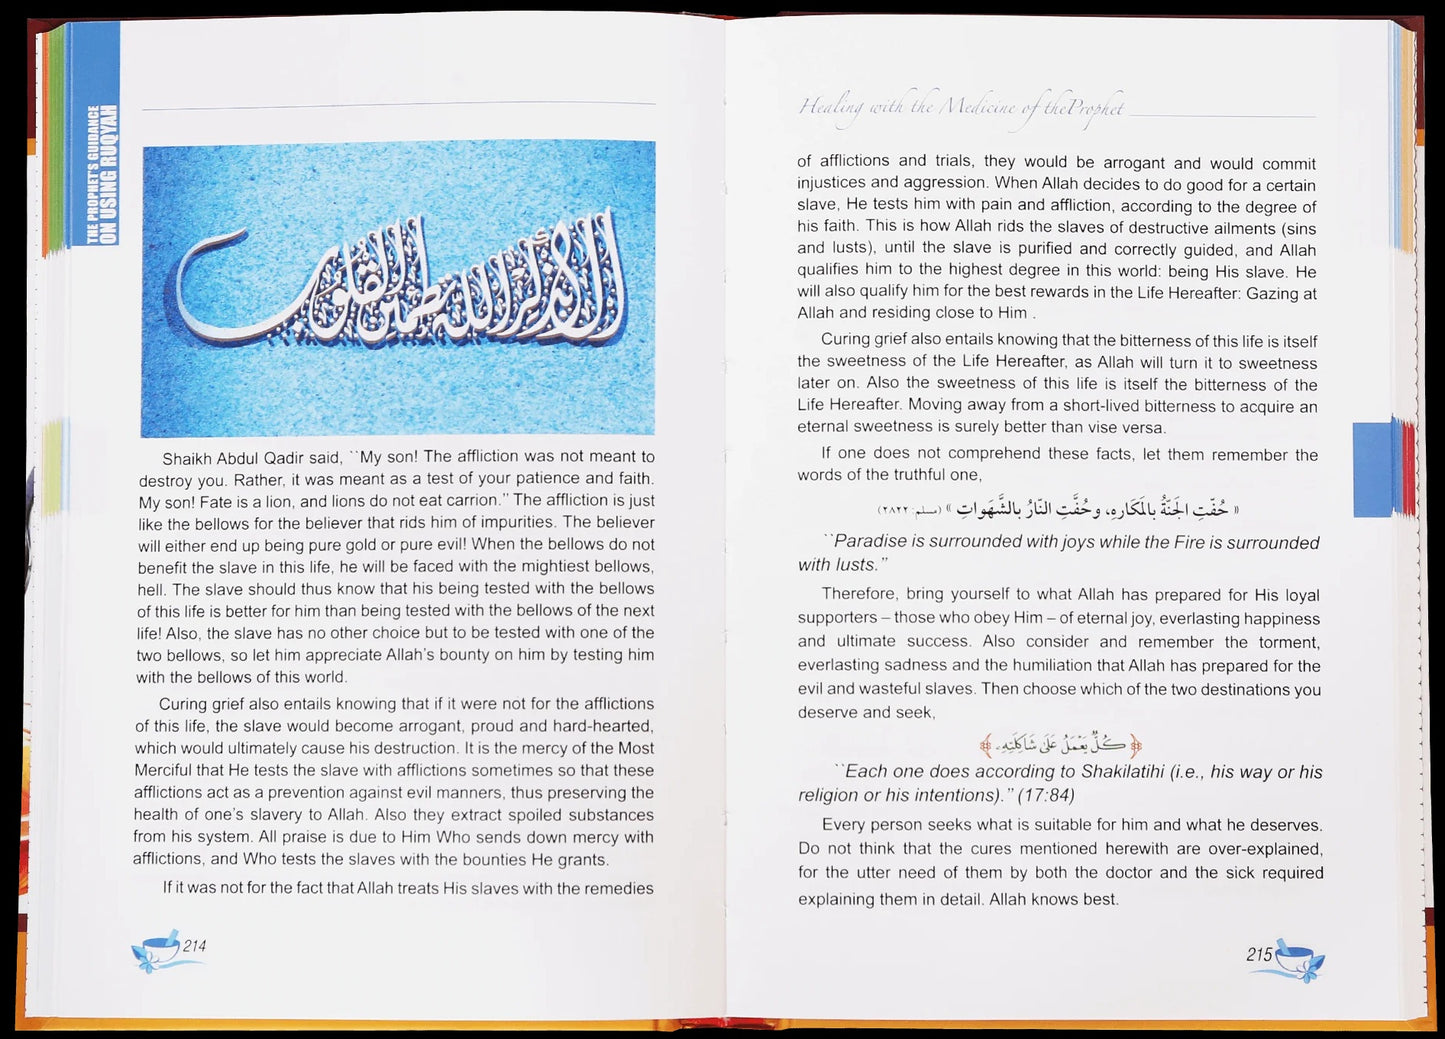 THE PROPHET'S GUIDANCE
ON USING RUQYAH
ألا بذكر الله تطمئن القلوب
Shaikh Abdul Qadir said, ``My son! The affliction was not meant to
destroy you. Rather, it was meant as a test of your patience and faith.
My son! Fate is a lion, and lions do not eat carrion.'' The affliction is just
like the bellows for the believer that rids him of impurities. The believer
will either end up being pure gold or pure evil! When the bellows do not
benefit the slave in this life, he will be faced with the mightiest bellows,
hell. The slave should thus know that his being tested with the bellows
of this life is better for him than being tested with the bellows of the next
life! Also, the slave has no other choice but to be tested with one of the
two bellows, so let him appreciate Allah's bounty on him by testing him
with the bellows of this world.
Curing grief also entails knowing that if it were not for the afflictions
of this life, the slave would become arrogant, proud and hard-hearted,
which would ultimately cause his destruction. It is the mercy of the Most
Merciful that He tests the slave with afflictions sometimes so that these
afflictions act as a prevention against evil manners, thus preserving the
health of one's slavery to Allah. Also they extract spoiled substances
from his system. All praise is due to Him Who sends down mercy with
afflictions, and Who tests the slaves with the bounties He grants.
If it was not for the fact that Allah treats His slaves with the remedies
214
Healing with the Medicine of theProphet
of afflictions and trials, they would be arrogant and would commit
injustices and aggression. When Allah decides to do good for a certain
slave, He tests him with pain and affliction, according to the degree of
his faith. This is how Allah rids the slaves of destructive ailments (sins
and lusts), until the slave is purified and correctly guided, and Allah
qualifies him to the highest degree in this world: being His slave. He
will also qualify him for the best rewards in the Life Hereafter: Gazing at
Allah and residing close to Him .
Curing grief also entails knowing that the bitterness of this life is itself
the sweetness of the Life Hereafter, as Allah will turn it to sweetness
later on. Also the sweetness of this life is itself the bitterness of the
Life Hereafter. Moving away from a short-lived bitterness to acquire an
eternal sweetness is surely better than vise versa.
If one does not comprehend these facts, let them remember the
words of the truthful one,
« حُفَّتِ الجَنَّةُ بالمَكَارِهِ، وحُفَّتِ النَّارُ بالشَّهَواتِ » (مسلم: ٢٨٢٢)
``Paradise is surrounded with joys while the Fire is surrounded
with lusts.''
Therefore, bring yourself to what Allah has prepared for His loyal
supporters – those who obey Him – of eternal joy, everlasting happiness
and ultimate success. Also consider and remember the torment,
everlasting sadness and the humiliation that Allah has prepared for the
evil and wasteful slaves. Then choose which of the two destinations you
deserve and seek,
﴿ كُلٌّ يَعْمَلُ عَلَىٰ شَاكِلَتِهِۦ ﴾
``Each one does according to Shakilatihi (i.e., his way or his
religion or his intentions).'' (17:84)
Every person seeks what is suitable for him and what he deserves.
Do not think that the cures mentioned herewith are over-explained,
for the utter need of them by both the doctor and the sick required
explaining them in detail. Allah knows best.
215